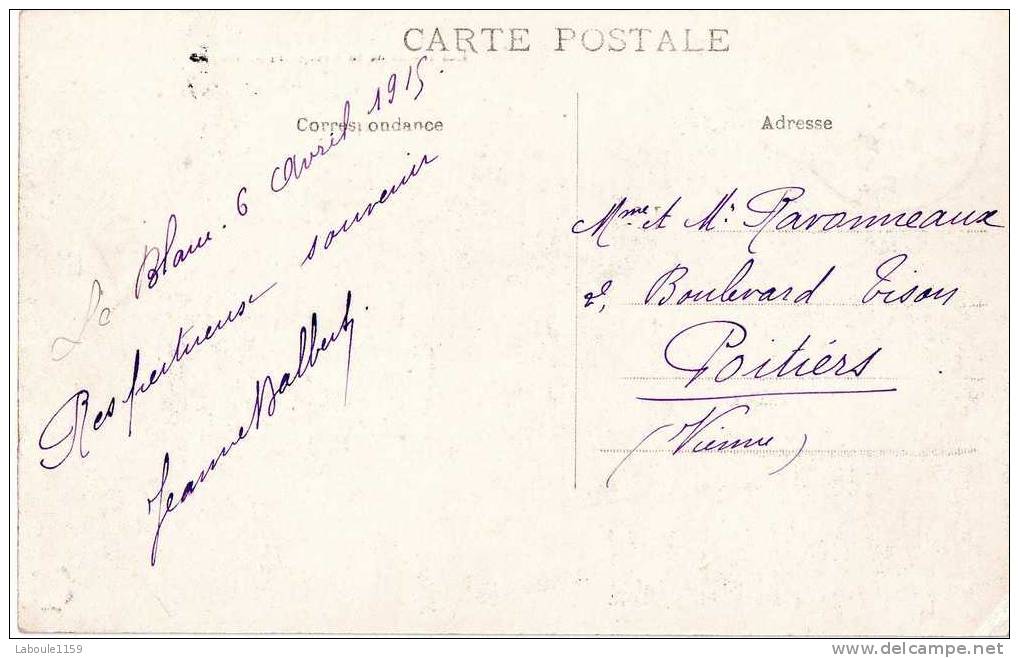 CARTE POSTALE
Correspondance
Le Blanc. 6 Avril 1915.
Respectueux souvenir
Jeanne
Adresse
Mme et Mr Ravonneaux
2, Boulevard Tison
Poitiérs
(Vienne)
Laboule1159
delcampe.net